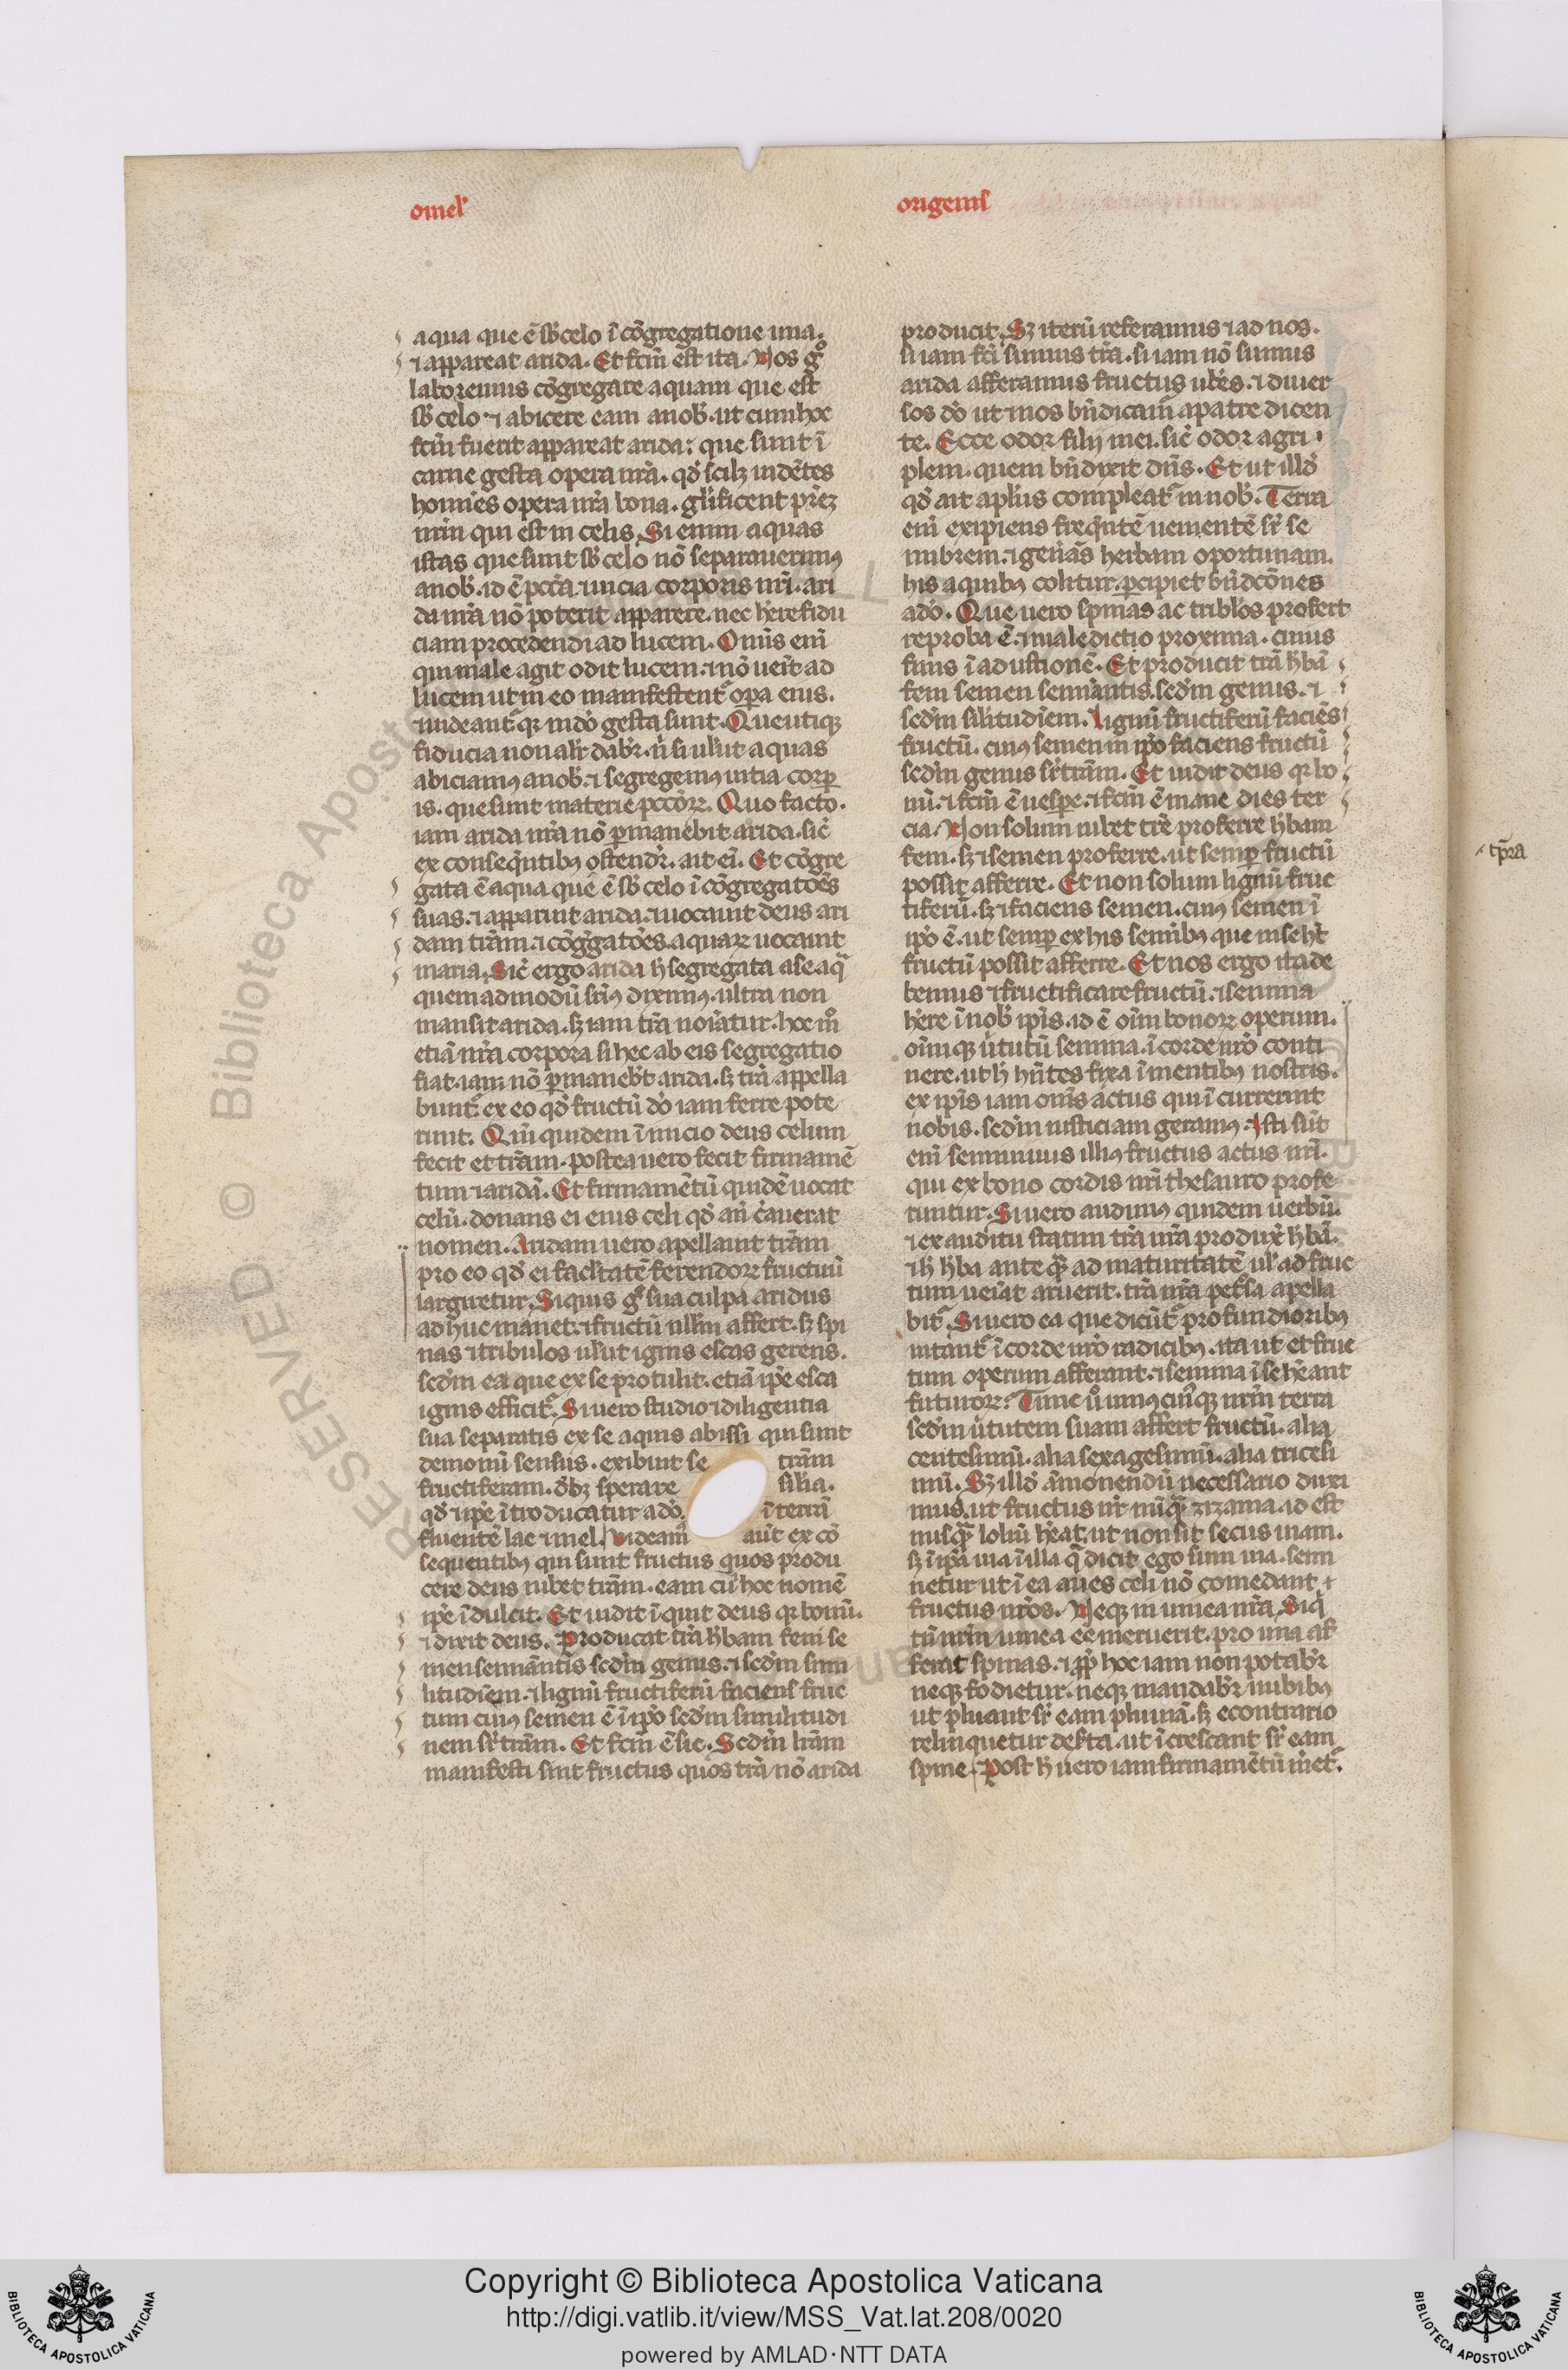 omel'
origenis
aqua que ē sb' celo ī cōgregatione una.
⁊ appareat arida. Et fcm̄ est ita. Nos gͦ
laboremus cōgregare aquam que est
sb' celo ⁊ abicere eam a nob'. ut cum hoc
fcm̄ fuerit appareat arida: que sunt ī
carne gesta opera nr̄a. qd' scilz uidētes
homines opera nr̄a bona. gl'ificent pr̄ez
nrm̄ qui est in celis. Si enim aquas
istas que sunt sb' celo nō separauerimꝰ
a nob'. id ē pcc̄a uicia corporis nr̄i. ari
da nr̄a nō poterit apparere. nec h'ere fidu
ciam procedendi ad lucem. Omīs eni
qui male agit odit lucem. ⁊ nō uenit ad
lucem ut in eo manifestent' opa eius.
⁊ uideant' qꝫ in dō gesta sunt. Que utiqꝫ
fiducia non alr' dabr'. n̄ si ulut aquas
abiciamꝰ a nob'. ⁊ segregemꝰ uitia corp
is. que sunt materie pccōꝝ. Quo facto.
iam arida nr̄a nō ꝑmanebit arida. sic̄
ex conseqn̄tibꝰ ostendr'. ait ei. Et cōgre
gata ē aqua que ē sb' celo ī cōgregatōes
suas. ⁊ apparuit arida. ⁊ uocauit deus ari
dam trām. ⁊ cōggatōes aquaꝝ uocauit
maria. Sic̄ ergo arida h' segregata a se aqͣ
quemadmodū suꝑiꝰ diximꝰ. ultra non
mansit arida. sꝫ iam tr̄a noīatur. hoc mͦ
etiā nr̄a corpora si hec ab eis segregatio
fiat. iam nō ꝑmanebt arida. sꝫ tr̄a appella
bunt' ex eo qd' fructū dō iam ferre pote
runt. Qm̄ quidem ī inicio deus celum
fecit et trām. postea uero fecit firmamē
tum ⁊ aridā. Et firmamētū quidē uocat
celū. donans ei eius celi qd' an̄ c̄auerat
nomen. Aridam uero apellauit trām
pro eo qd' ei facltatē ferendoꝝ fructuū
largiretur. Siquis gͦ sua culpa aridus
adhuc manet. ⁊ fructū nllm̄ affert. sꝫ spi
nas ⁊ tribulos ulut ignis escas gerens.
scdm̄ ea que ex se protulit. etiā ipe esca
ignis efficit'. Si uero studio ⁊ diligentia
sua separatis ex se aquis abissi qui sunt
demonū sensus. exibuit se trām
fructiferam. dꝫ sperare silia.
qd' ⁊ ipe introducatur a dō. ī terrā
fluentē lac ⁊ mel. Uideam' aut ex cō
sequentibꝰ qui sunt fructus quos produ
cere deus iubet trām. eam cui hoc nomē
ipe īdulcit. Et uidit īquit deus qꝫ bonū.
⁊ dixit deus. Producat tr̄a h'bam feni se
men semināntis scdm̄ genus. ⁊ scdm̄ simi
litudīem. ⁊ lignū fructiferū faciens fruc
tum cuiꝰ semen ē ī ipo scdm̄ similitudi
nem sr̄ trām. Et fcm̄ ē sic. Scdm̄ lr̄am
manifesti sunt fructus quos tr̄a nō arida
producit. Sꝫ iterū referamus ⁊ ad nos.
si iam fci sumus tr̄a. si iam nō sumus
arida afferamus fructus ub'es. ⁊ diuer
sos dō ut ⁊ nos bn̄dicam̄ a patre dicen
te. Ecce odor filij mei. sic̄ odor agri
plem. quem bn̄dixit dn̄s. Et ut illd'
qd' ait aplus compleat' in nob'. Terra
eni excipiens freqn̄tē uenientē sr̄ se
imbrem. ⁊ gen̄ās herbam oportunam.
his a quibꝰ colitur. ꝑcipiet bn̄dcōnes
a dō. Que uero spinas ac triblos profert
reproba ē. ⁊ maledictio proxima. cuius
finis ī adustionē. Et producit trā h'bā
fem semen seminantis scdm̄ genus. ⁊
scdm̄ silitudīem. Lignū fructiferū faciēs
fructū. cuiꝰ semen in ipo faciens fructū
scdm̄ genus sr̄ trām. Et uidit deus qꝫ bo
nū. ⁊ fcm̄ ē uespe. ⁊ fcm̄ ē mane dies ter
cia. Non solum iubet tr̄e proferre h'bam
fem. sꝫ ⁊ semen proferre. ut semꝑ fructū
possit afferre. Et non solum lignū fruc
tiferū. sꝫ ⁊ faciens semen. cuiꝰ semen ī
ipo ē. ut semꝑ ex his semibꝰ que in se h't
fructū possit afferre. Et nos ergo ita de
bemus ⁊ fructificare fructū. ⁊ semina
h'ere ī nob' ipis. id ē oīm bonoꝝ operum.
oīmqꝫ ūtutū semina. ī corde nr̄o conti
nere. ut h' hn̄tes fixa ī mentibꝰ nostris.
ex ipis iam omīs actus qui ī currerint
nobis. scdm̄ iusticiam geramꝰ. Isti sūt
eni seminius illiꝰ fructus actus nr̄i.
qui ex bono cordis nr̄i thesauro profe
runtur. Si uero audimꝰ quidem uerbū.
⁊ ex auditu statim tr̄a nr̄a produxt h'bā.
⁊ h' h'ba anteqͣ ad maturitatē ul' ad fruc
tum ueniat aruerit. tr̄a nr̄a petsa apella
bit'. Si uero ea que dicūt' profundioribꝰ
nitant' ī corde nr̄o radicibꝰ. ita ut et fruc
tum operum afferant. ⁊ semina ī se h'eant
futuroꝝ. Tunc uͦ uniꝰcuiꝰqꝫ nrm̄ terra
scdm̄ ūtutem suam affert fructū. alia
centesimū. alia sexagesimū. alia tricesi
mū. Sꝫ illd' āmonendū necessario duxi
mus. ut fructus nr̄ nūqͣ zizania. id est
nusqͣ loliū h'eat. ut non sit secus uiam.
sꝫ ī ipa uia ī illa q̄ dicit ego sum uia. semi
netur ut ī ea aues celi nō comedant
fructus nr̄os. Neqꝫ in uinea nr̄a. Siq̄
tū nrm̄ uinea eē meruerit. pro uua af
ferat spinas. ⁊ ꝓp̄ hoc iam non potabr'
neqꝫ fodietur. neqꝫ mandabr' nubibꝰ
ut pluant sr̄ eam pluuiā. sꝫ econtrario
relinquetur desta. ut ī crescant sr̄ eam
spine. Post h' uero iam firmamētū m̄et'.
Copyright © Biblioteca Apostolica Vaticana
http://digi.vatlib.it/view/MSS_Vat.lat.208/0020
powered by AMLAD·NTT DATA
BIBLIOTECA APOSTOLICA VATICANA
BIBLIOTECA APOSTOLICA VATICANA